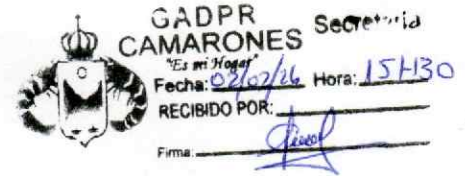 GADPR
Secretaria
CAMARONES
"Es mi Hogar"
Fecha: 02/02/26 Hora: 15H30
RECIBIDO POR:
Firma: